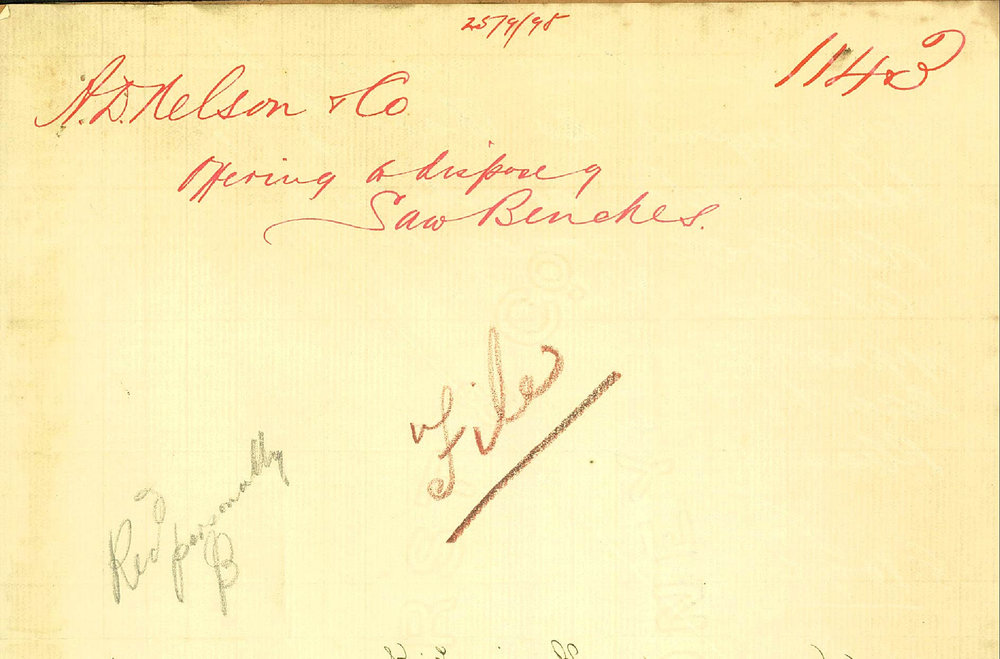 25/9/98
1143
A.D. Nelson & Co
Offering to dispose of
Saw Benches.
File
Recd
personally
B